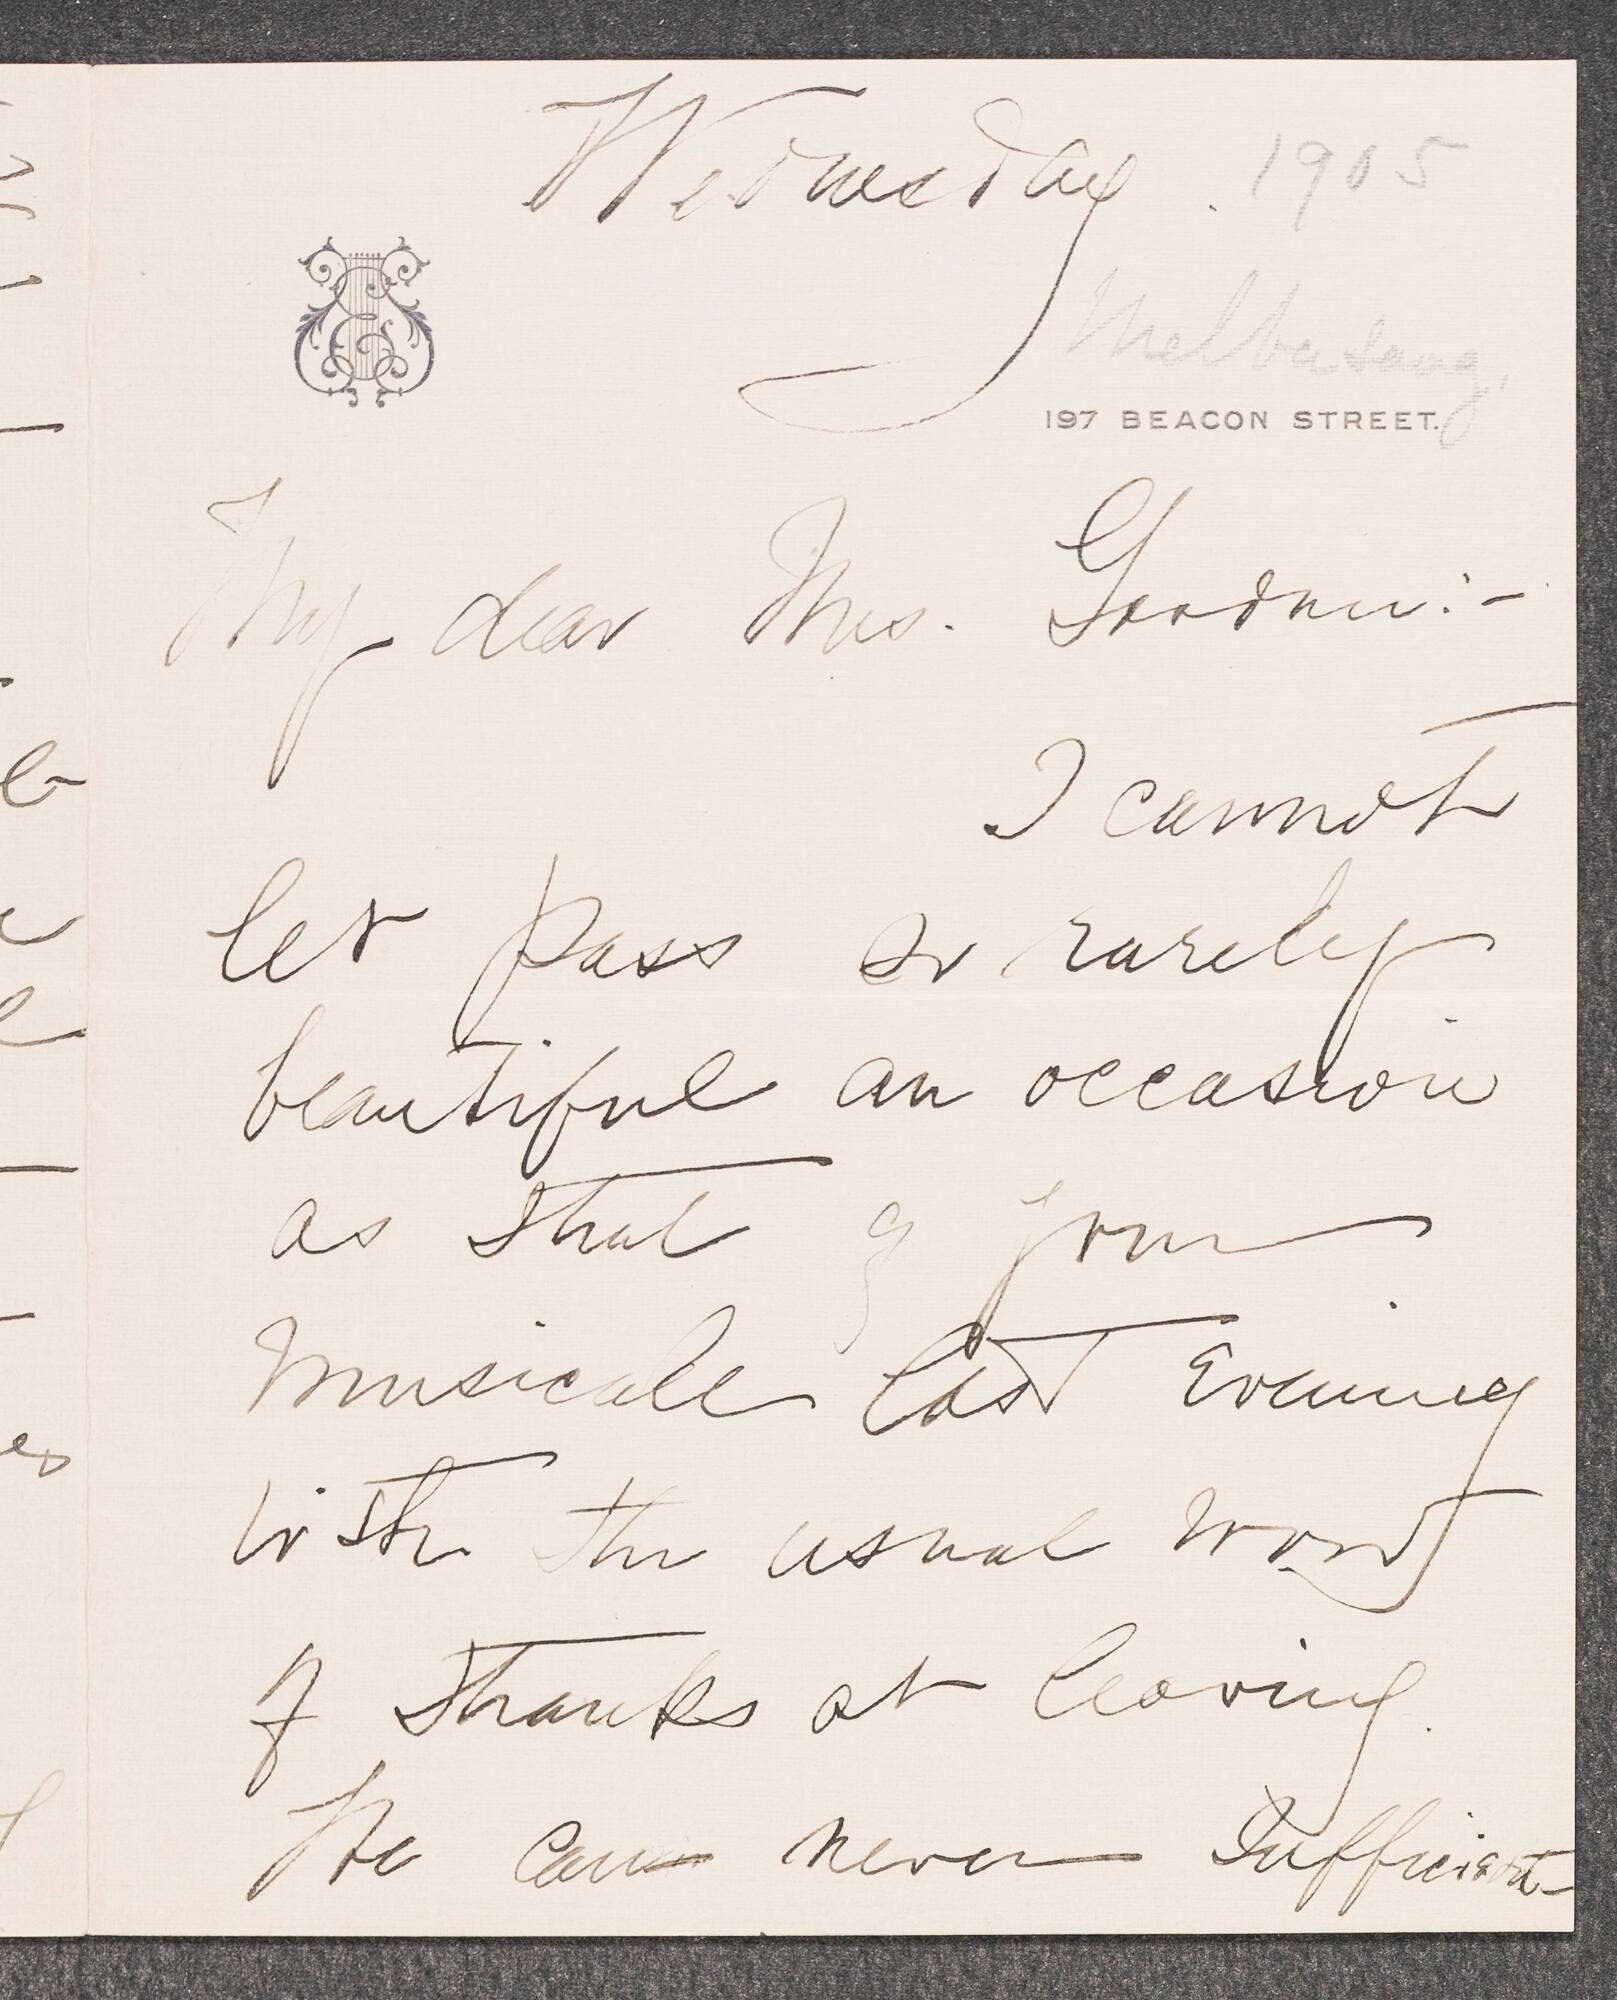 Wednesday. 1905
Melba sang,
197 BEACON STREET.
My dear Mrs. Goodwin:-
I cannot
let pass so rarely
beautiful an occasion
as that of your
Musicale last Evening
with the usual word
of thanks at leaving.
We can never sufficient-